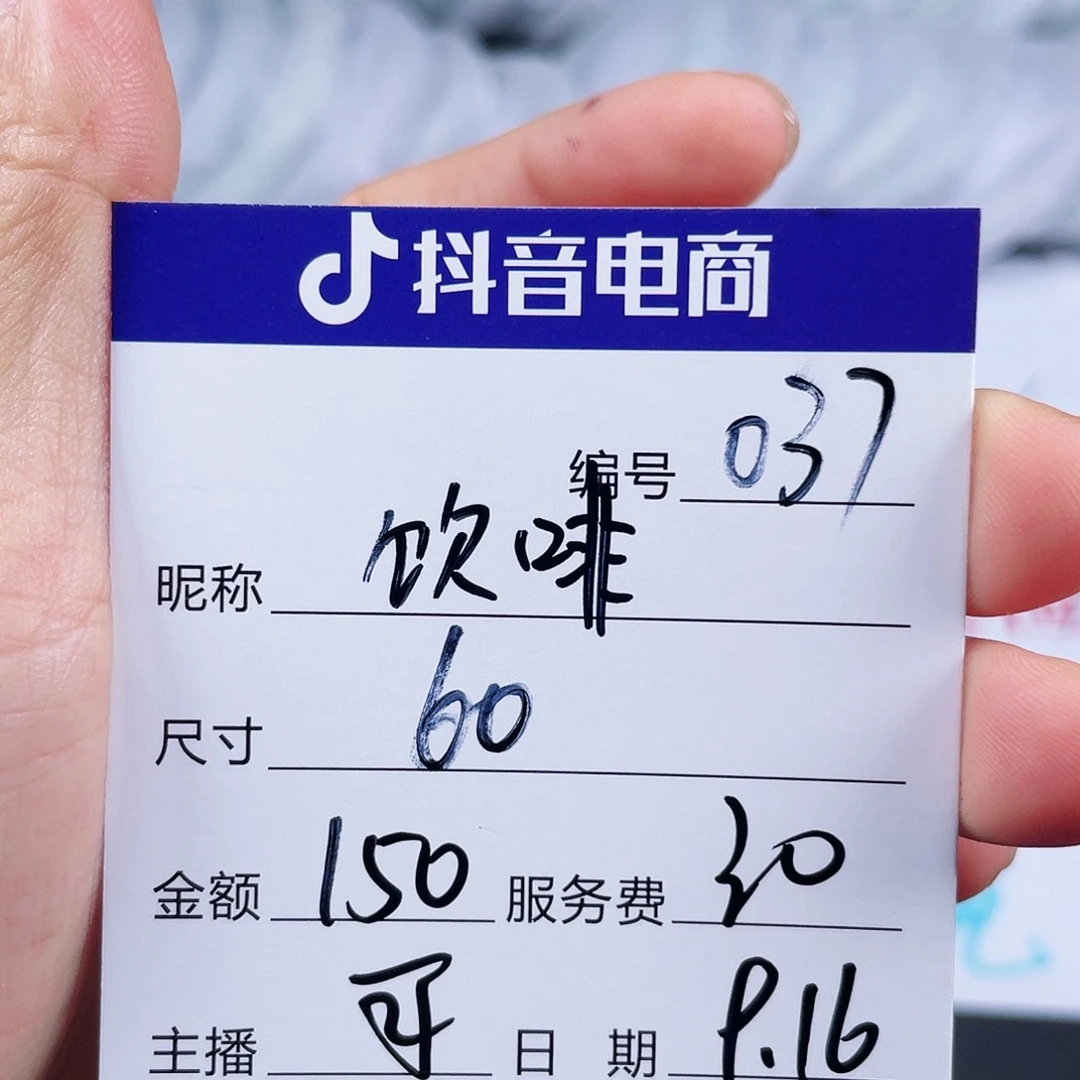 抖音电商
编号 037
昵称 饮啡
尺寸 60
金额 150 服务费 30
主播 日期 9.16